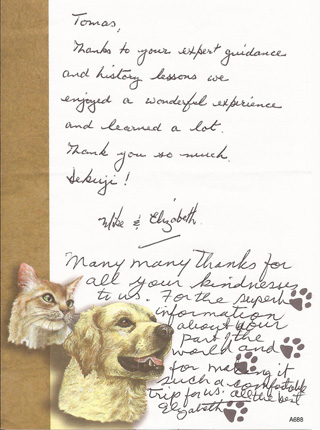 Tomas,
Thanks to your expert guidance
and history lessons we
enjoyed a wonderful experience
and learned a lot.
Thank you so much.
Dekuji!
Mike & Elizabeth
Many many thanks for
all your kindnesses
to us. For the superb
information
about your
part of the
world and
for making it
such a comfortable
trip for us. all the best
Elizabeth
A688